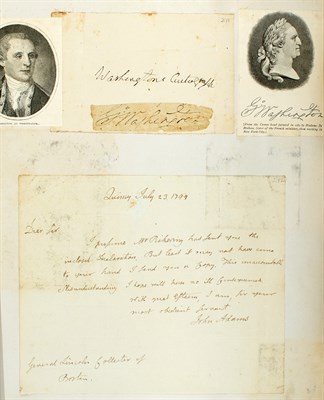 Washingtons Autograph
Go Washington
Go Washington
Quincy July 23 1799
Dear Sir
I presume Mr Pickering has sent you the
inclosed Declaration. But lest it may not have come
to your hand I send you a Copy. This
Misunderstanding I hope will have no ill Consequence
with great Esteem, I am, Sir your
most obedient Servant
John Adams
General Lincoln Collector of
Boston.